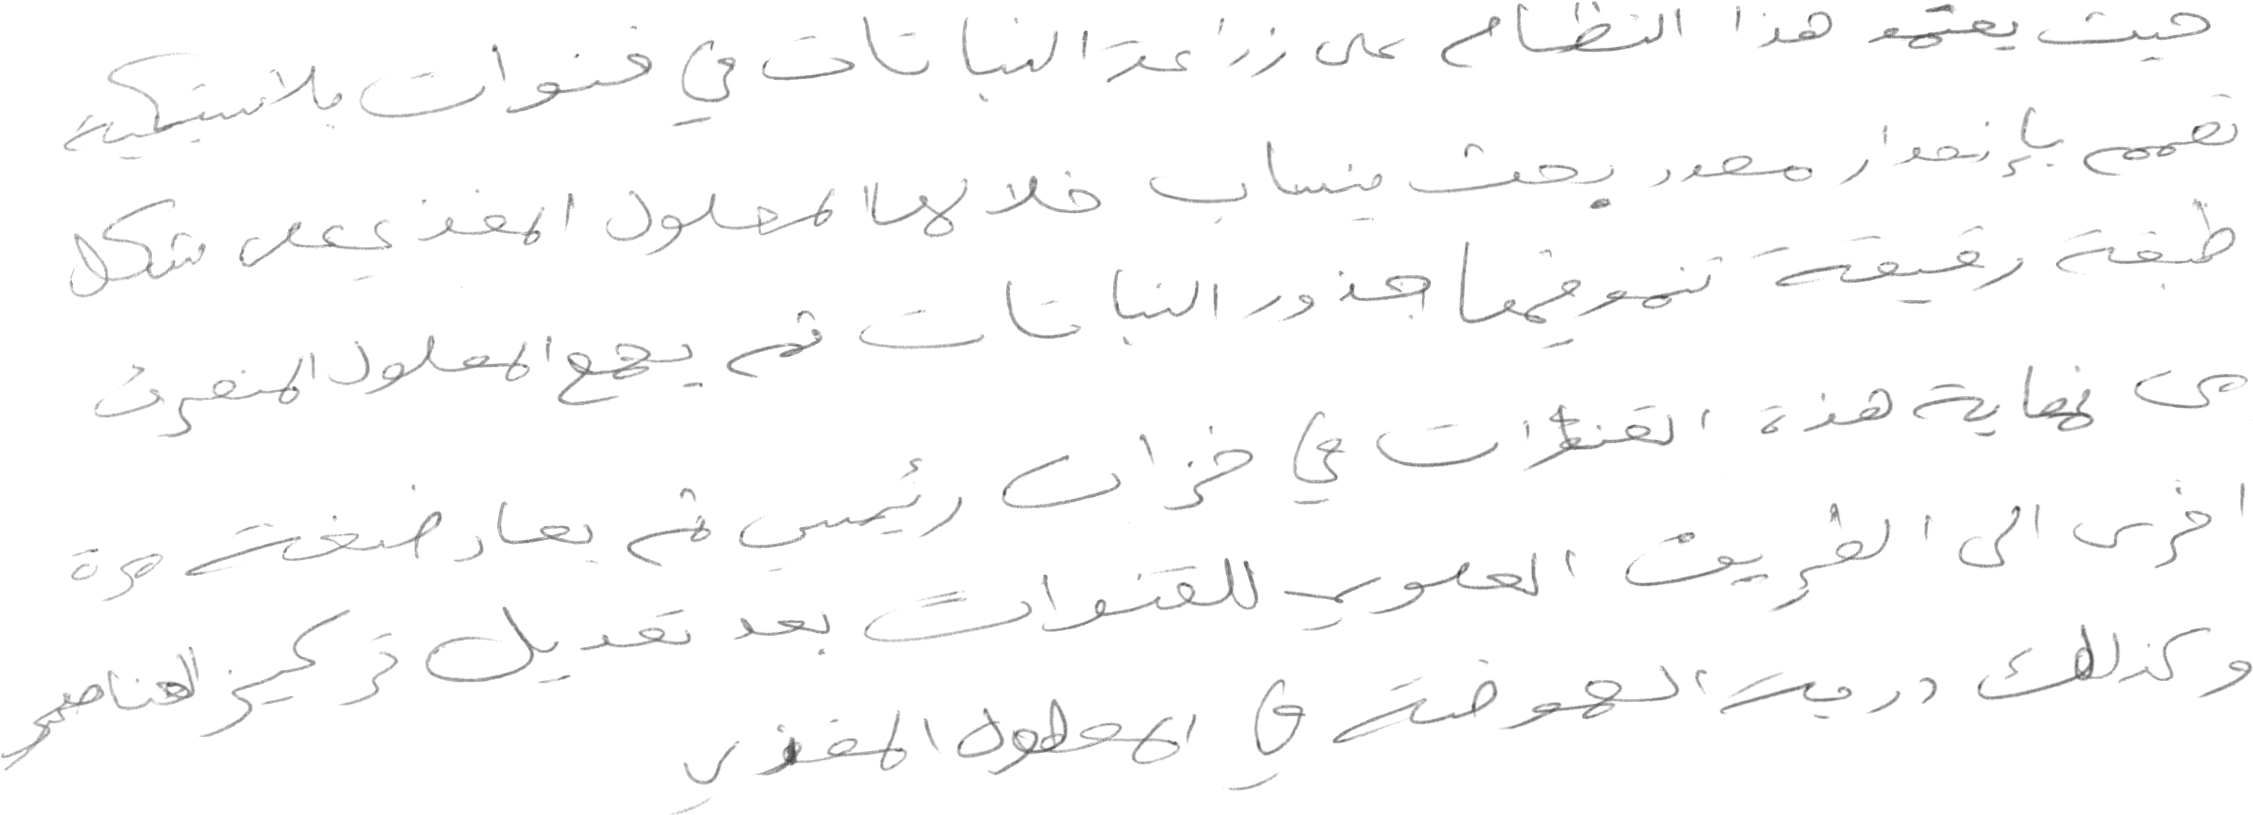 حيث يعتمد هذا النظام على زراعة النباتات في قنوات بلاستيكية
تصمم بإنحدار محدد بحيث ينساب خلالها المحلول المغذي على شكل
طبقة رقيقة تنمو فيها جذور النباتات ثم يجمع المحلول المنصرف
من نهاية هذة القنوات في خزان رئيسي ثم يعاد ضخة مرة
اخرى الى الطريف العلوي للقنوات بعد تعديل تركيز العناصر
وكذلك درجة الحموضة في المحلول المغذي